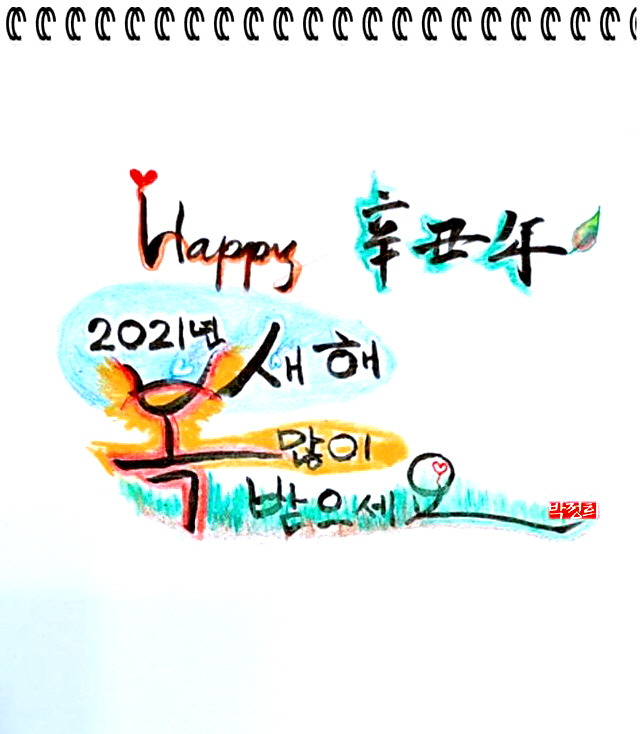 Happy 辛丑年
2021년 새해
복 많이
받으세요
박정희